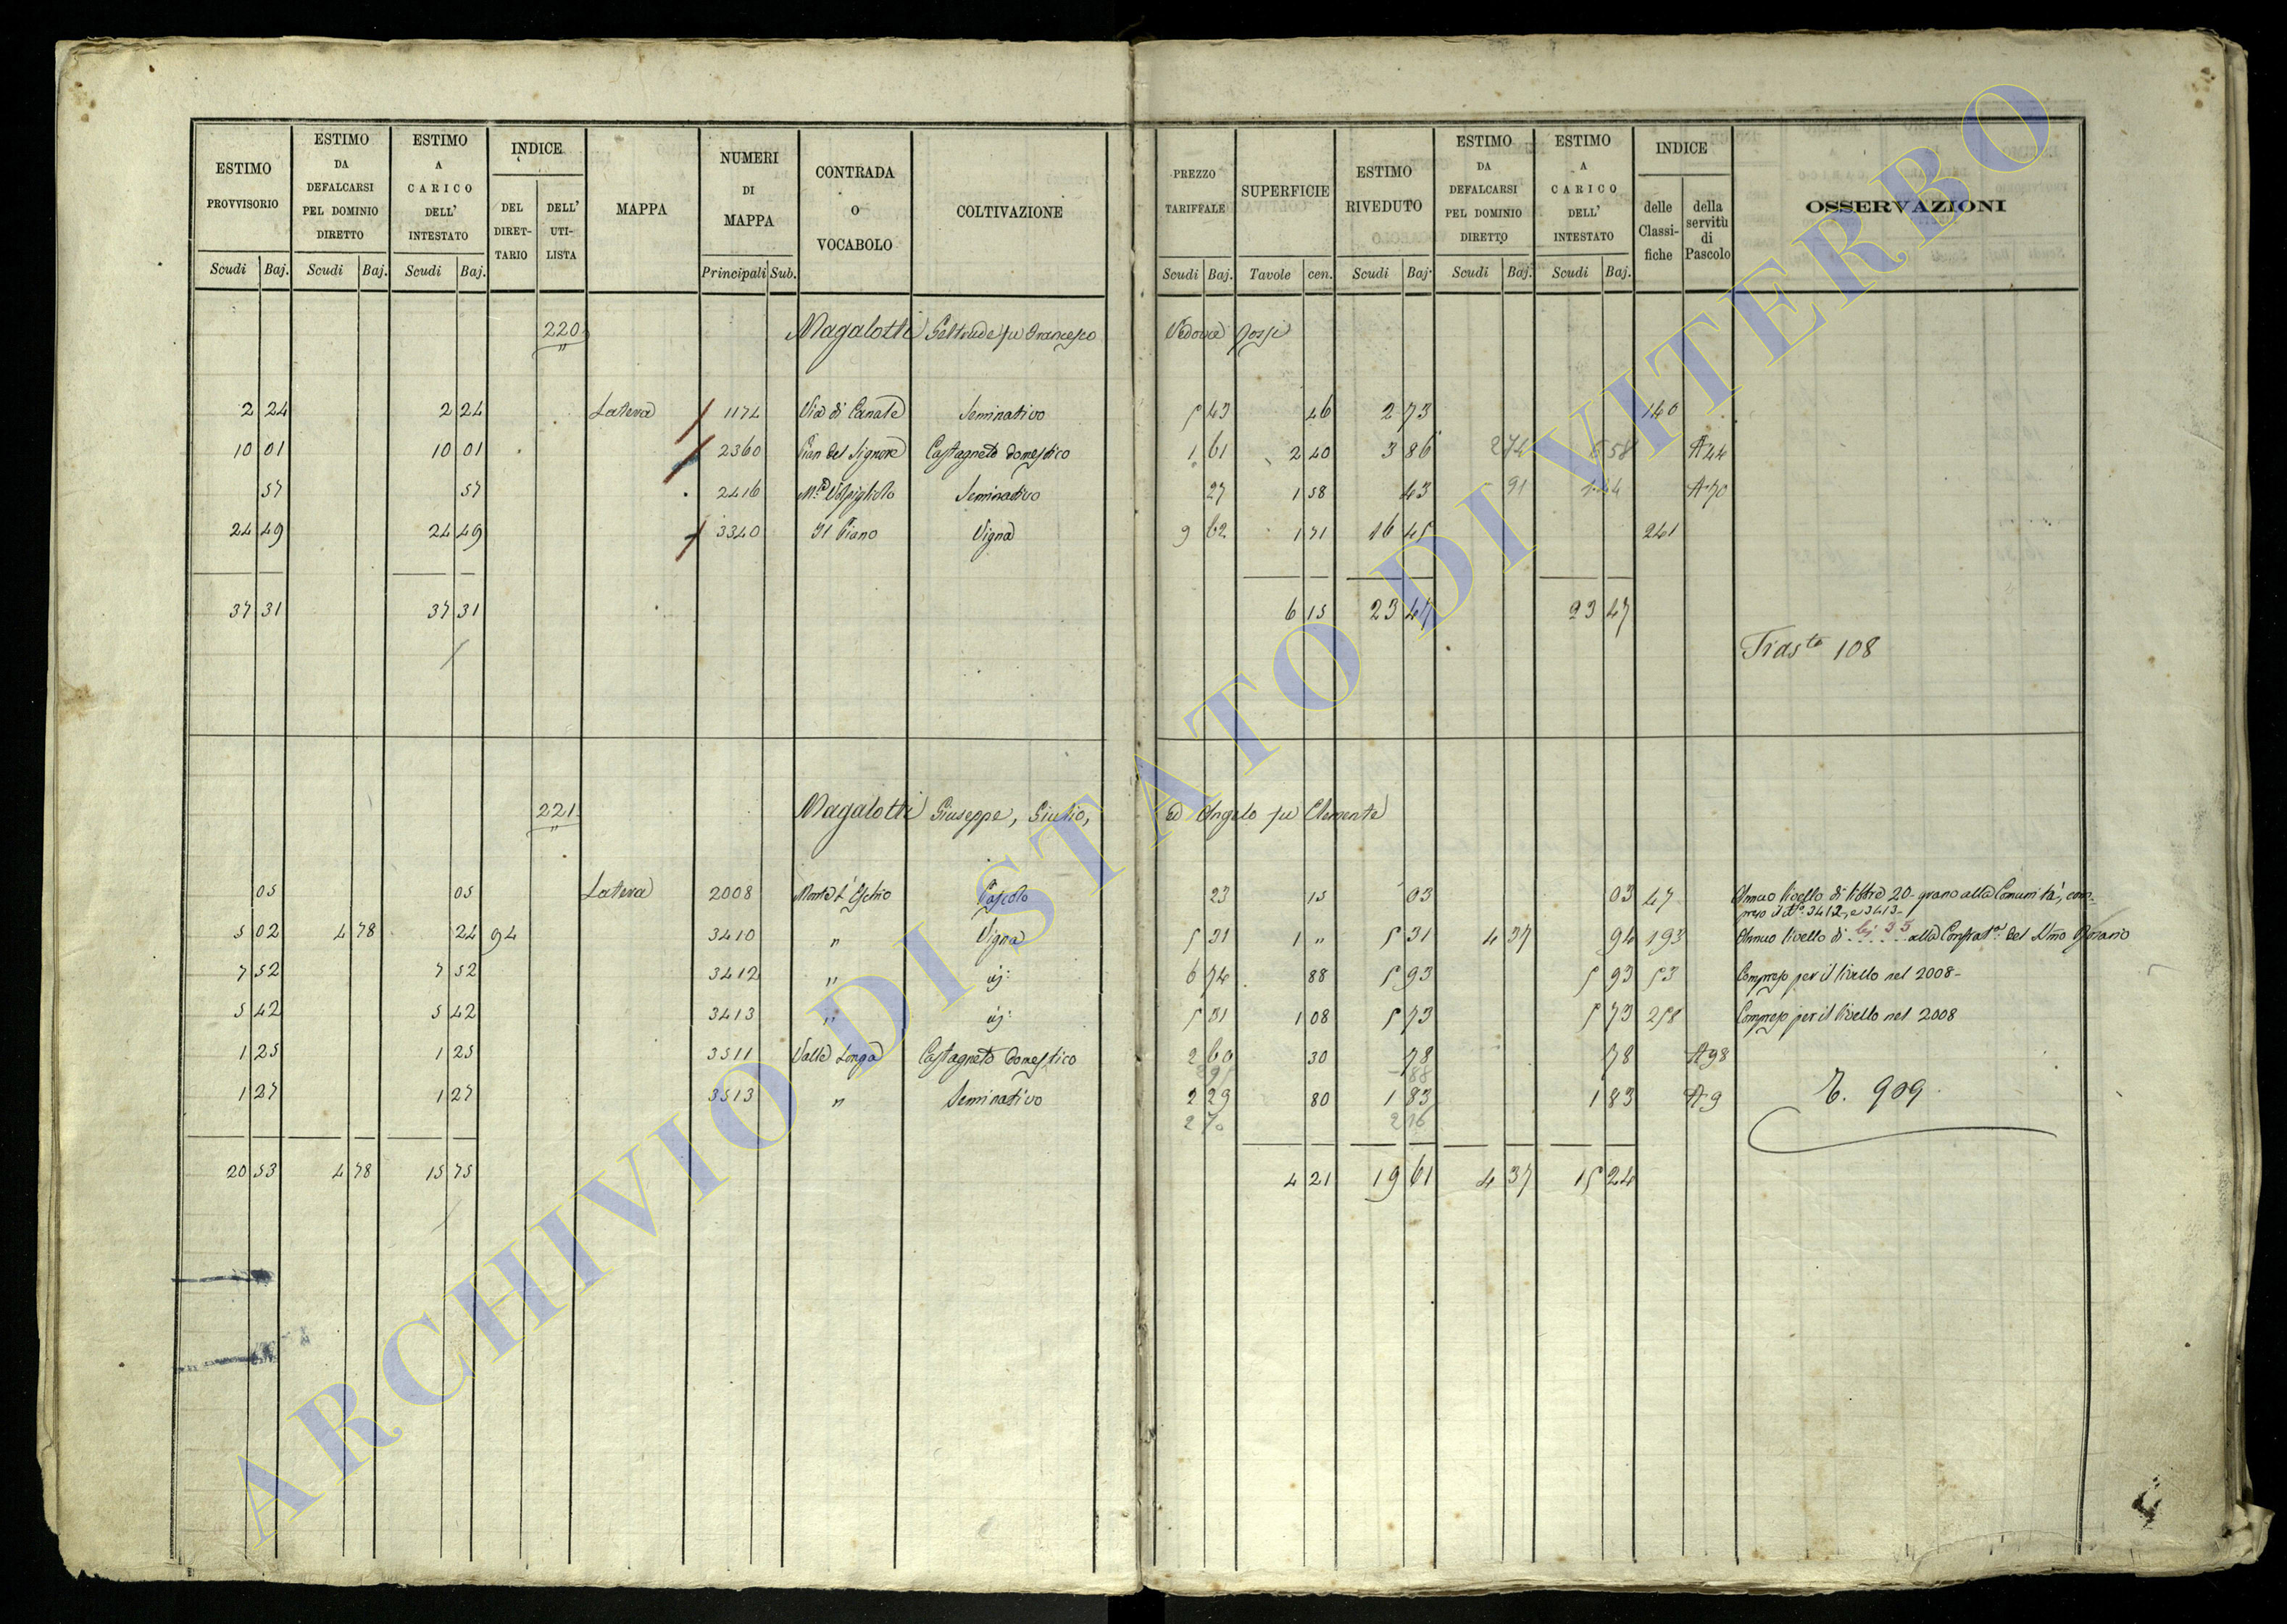 ESTIMO PROVVISORIO | ESTIMO DA DEFALCARSI PEL DOMINIO DIRETTO | ESTIMO A CARICO DELL' INTESTATO | INDICE | MAPPA | NUMERI DI MAPPA | CONTRADA O VOCABOLO | COLTIVAZIONE | PREZZO TARIFFALE | SUPERFICIE | ESTIMO RIVEDUTO | ESTIMO DA DEFALCARSI PEL DOMINIO DIRETTO | ESTIMO A CARICO DELL' INTESTATO | INDICE | OSSERVAZIONI
DEL DIRET-TARIO | DELL' UTI-LISTA | delle Classi-fiche | della servitù di Pascolo
Scudi | Baj. | Scudi | Baj. | Scudi | Baj. | Principali | Sub. | Scudi | Baj. | Tavole | cen. | Scudi | Baj. | Scudi | Baj. | Scudi | Baj.
220 Magalotti Geltrude fu Francesco Vedova Rossi
2 24 | 2 24 | Latera | 1174 | Via di Canale | Seminativo | 5 43 | 46 | 2 73 | 140
10 01 | 10 01 | 2360 | Pian del Signore | Castagneto domestico | 1 61 | 2 40 | 3 86 | 2 74 | 6 58 | A 44
57 | 57 | 2416 | Seminativo | 27 | 1 58 | 43 | 91 | A 70
24 49 | 24 49 | 3340 | Il Piano | Vigna | 9 62 | 1 71 | 16 45 | 241
37 31 | 37 31 | 6 15 | 23 47 | 23 47
Trasto 108
221 Magalotti Giuseppe, Giulio, ed Angelo fu Clemente
05 | 05 | Latera | 2008 | Monte L'Eschio | Pascolo | 23 | 15 | 03 | 03 | 47 | Annuo livello di libbre 20 grano alla Comunità, com-
preso il d.° 3412, e 3413-
5 02 | 4 78 | 24 | 94 | 3410 | " | Vigna | 5 31 | 1 " | 5 31 | 4 37 | 94 | 193 | Annuo livello di bj 35 alla Confrat.ª del SSmo Rosario
7 52 | 7 52 | 3412 | " | id: | 6 74 | 88 | 5 93 | 5 93 | 53 | Compreso per il livello nel 2008-
5 42 | 5 42 | 3413 | " | id: | 5 31 | 1 08 | 5 73 | 5 73 | 258 | Compreso per il livello nel 2008
1 25 | 1 25 | 3511 | Valle Longa | Castagneto domestico | 2 60 | 30 | 78 | 78 | A 98
88
1 27 | 1 27 | 3513 | " | Seminativo | 2 29 | 80 | 1 83 | 1 83 | A 9 | T. 909
2 70 | 2 16
20 53 | 4 78 | 15 75 | 4 21 | 19 61 | 4 37 | 15 24
ARCHIVIO DI STATO DI VITERBO